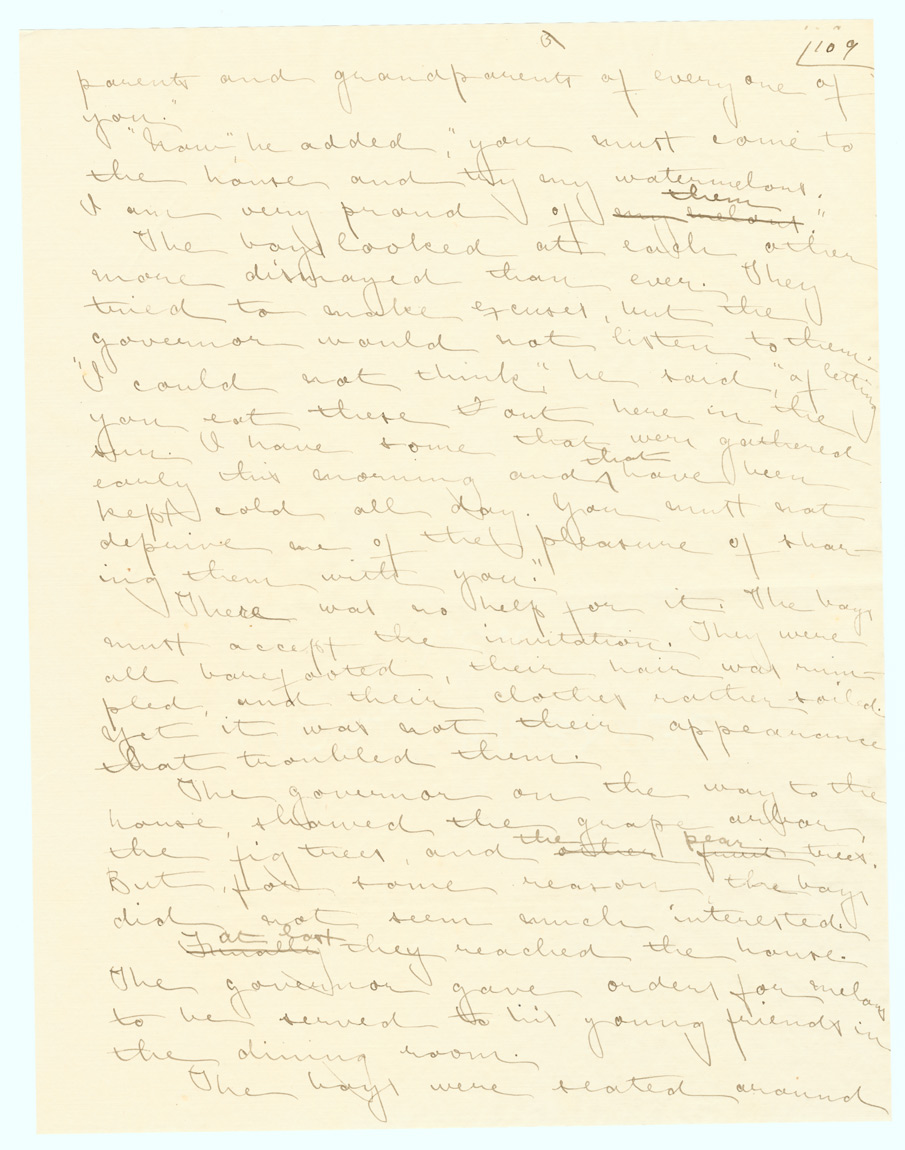 3
109
parents and grandparents of every one of
you."
"Now" he added, "you must come to
the house and try my watermelons.
I am very proud of my melons them."
The boys looked at each other
more dismayed than ever. They
tried to make excuses, but the
governor would not listen to them.
"I could not think," he said, "of letting
you eat these out here in the
sun. I have some that were gathered
early this morning and that have been
kept cold all day. You must not
deprive me of the pleasure of shar-
ing them with you."
There was no help for it. The boys
must accept the invitation. They were
all barefooted, their hair was rum-
pled, and their clothes rather soiled.
Yet it was not their appearance
that troubled them.
The governor on the way to the
house, showed the grape arbor,
the fig trees, and other the fruit pear trees.
But, for some reason the boys
did not seem much interested.
Finally At last they reached the house.
The governor gave orders for melons
to be served to his young friends in
the dining room.
The boys were seated around